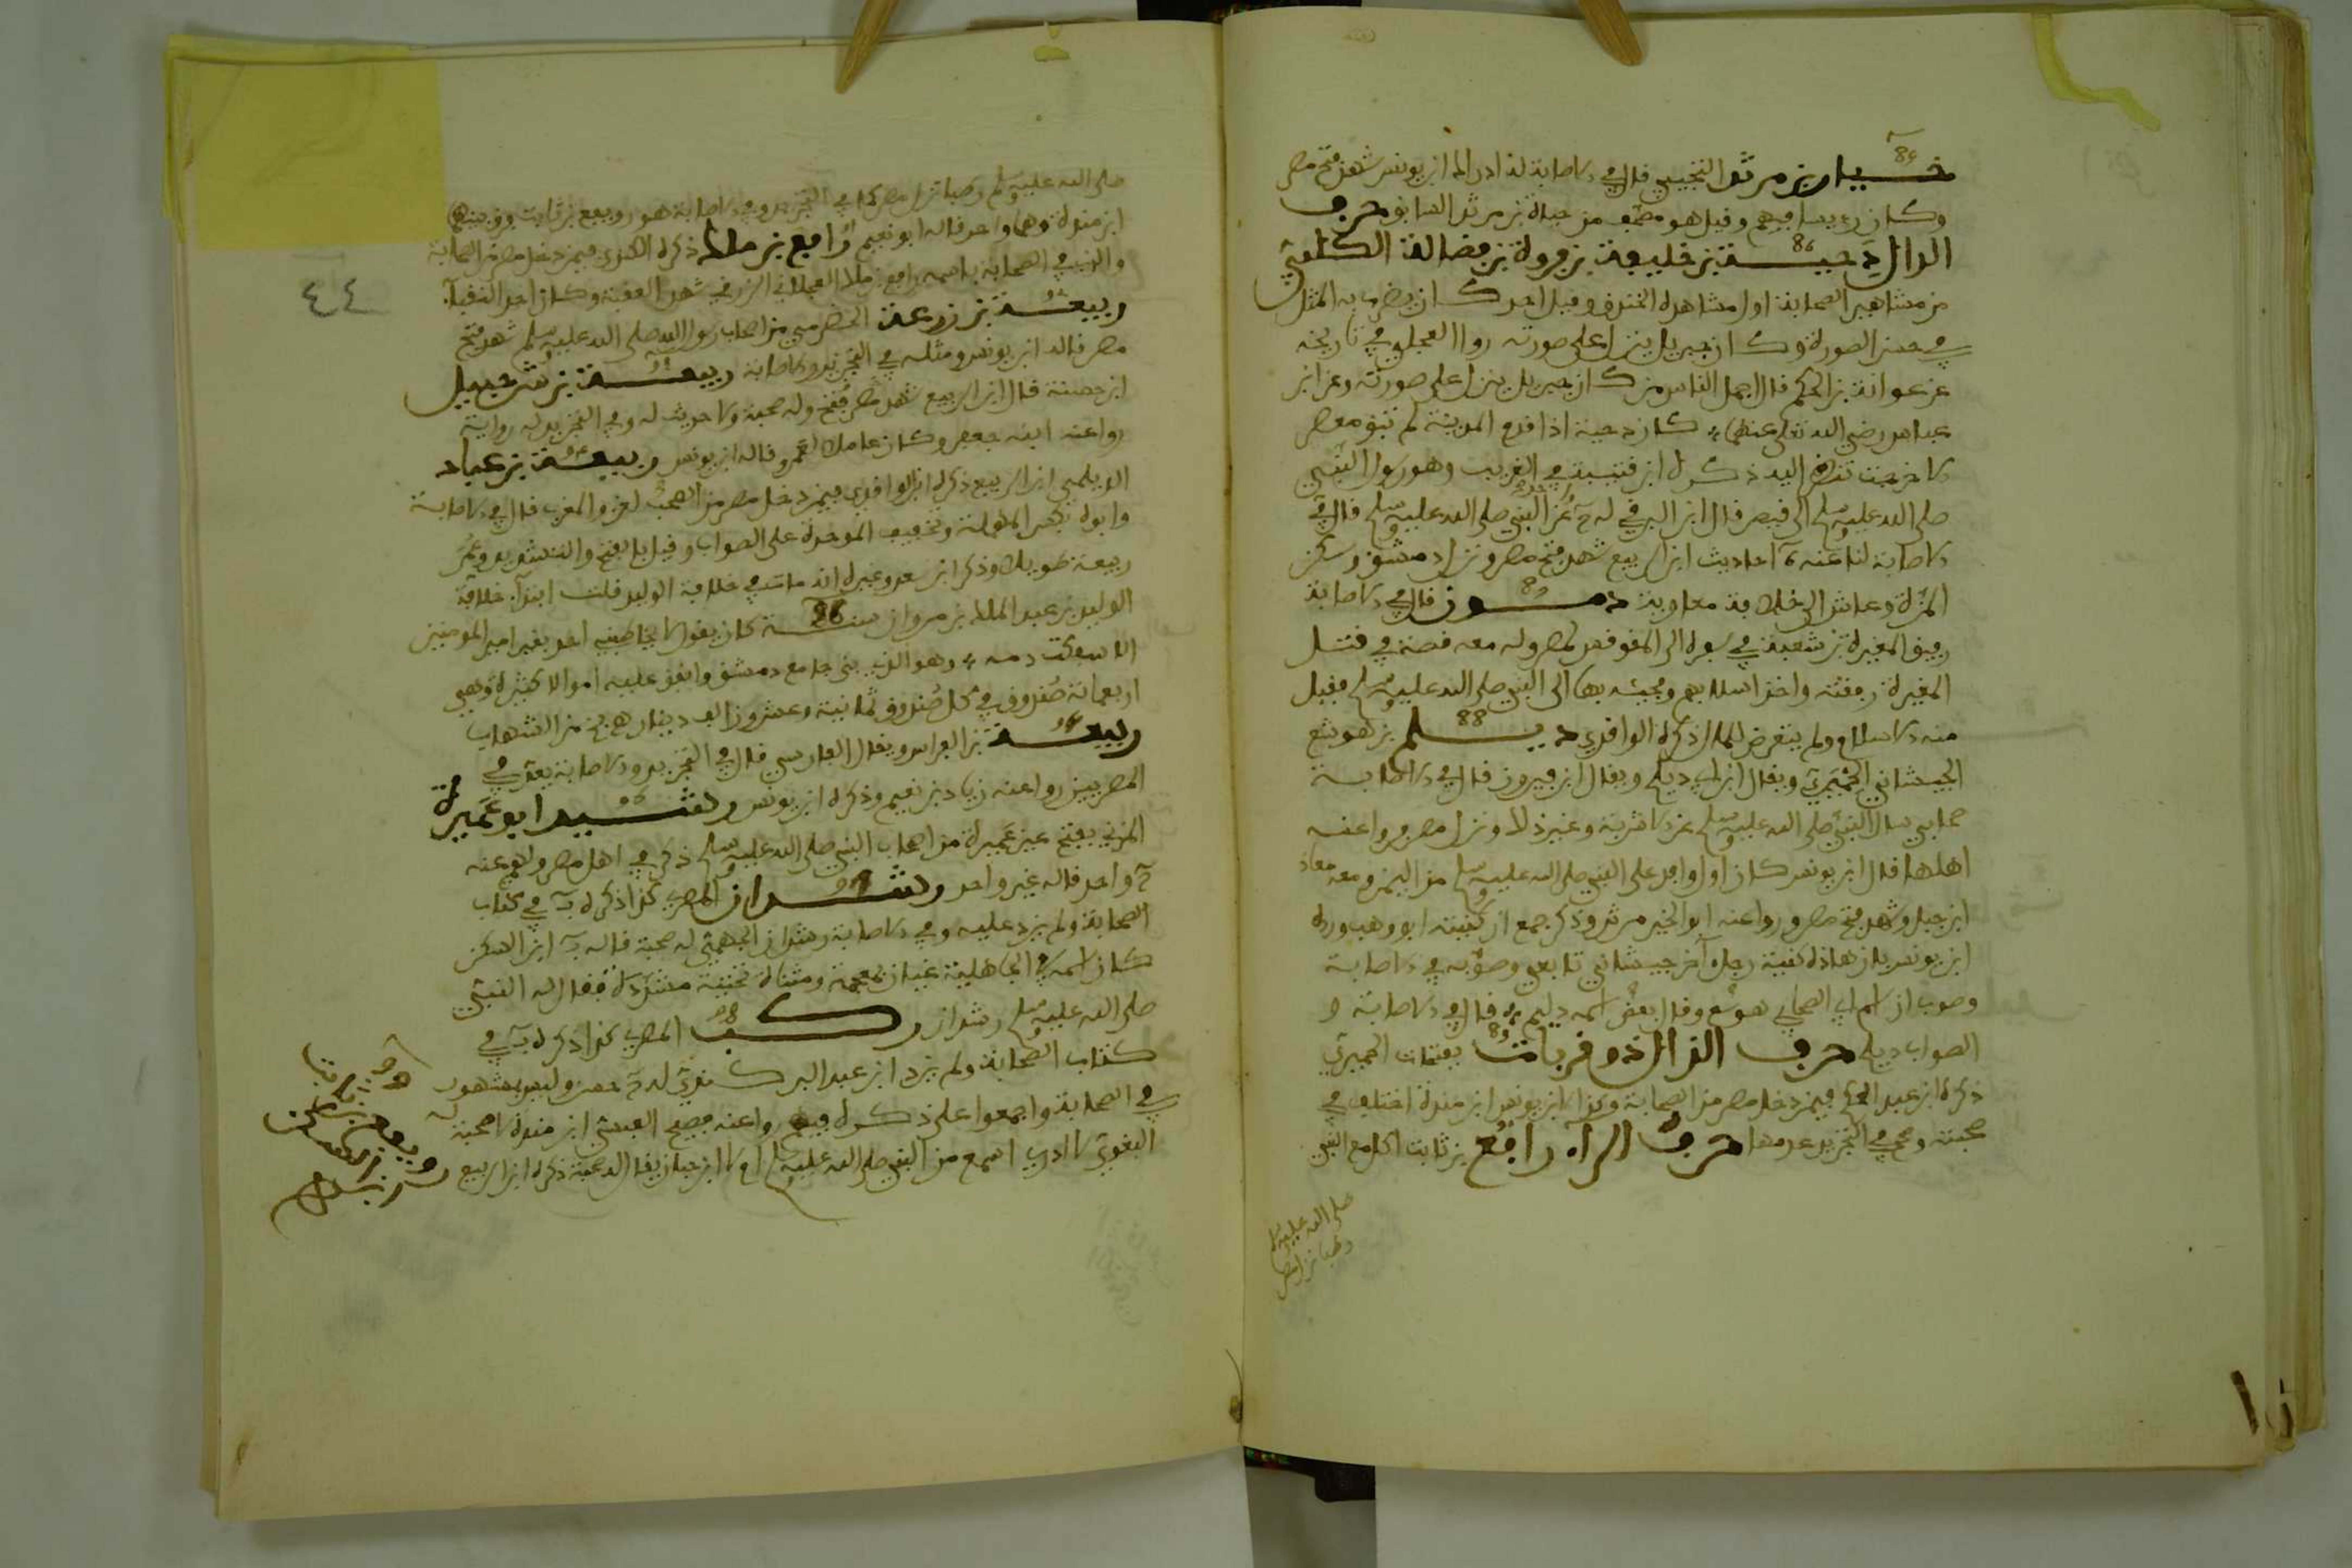 خيار بن مرثد التجيبي قال في الاصابة له ادراك ابن يونس شهد فتح مصر
وكان رئيسا فيهم وقيل هو مصحف من حيان بن مرثد السابق حرف
الدال دحية بن خليفة بن فروة بن فضالة الكلبي
من مشاهير الصحابة اول مشاهده الخندق وقيل احد كان يضرب به المثل
في حسن الصورة وكان جبريل ينزل على صورته روا العجلي في تاريخه
عن عوانة بن الحكم قال اجمل الناس من كان جبريل ينزل على صورته وعن ابن
عباس رضي الله تعلى عنهما كان دحية اذا قدم المدينة لم تبق معصر
الا خرجت تنظر اليه ذكره ابن قتيبة في الغريب وهو رسول النبي
صلى الله عليه وسلم الى قيصر قال ابن البرقي له عن النبي صلى الله عليه وسلم قال في
الاصابة لنا عنه احاديث ابن الربيع شهد فتح مصر ونزل دمشق وسكن
المزة وعاش الى خلافة معاوية دمون قال في الاصابة
رفيق المغيرة بن شعبة في سفره الى المقوقس بمصر وله معه قصة في قتل
المغيرة رفقته واخذ اسلابهم ومجيئه بها الى النبي صلى الله عليه وسلم فقبل
منه الاسلام ولم يتعرض للمال ذكره الواقدي ديلم بن هوشع
الجيشاني الحميري ويقال ابن ابي ديلم ويقال ابن فيروز قال في الاصابة
صحابي سال النبي صلى الله عليه وسلم عن الاشربة وغير ذلك ونزل مصر وروا عنه
اهلها قال ابن يونس كان اول وافد على النبي صلى الله عليه وسلم من اليمن ومعه معاذ
ابن جبل وشهد فتح مصر وروا عنه ابو الخير مرثد وذكر جمع ان كنيته ابو وهب ورده
ابن يونس بان هاذه كنية رجل آخر جيشاني تابعي وصوبه في الاصابة
وصوب ان اسم ابي الصحابي هوشع وقال بعض اسمه ديلم قال في الاصابة و
الصواب ديلم حرف الذال ذو قربات بفتحات الحميري
ذكره ابن عبد الحكم فيمن دخل مصر من الصحابة وكذا ابن يونس ابن مندة اختلف في
صحبته وصح في التجريد عدمها حرف الراء رافع بن ثابت اكل مع النبي
صلى الله عليه وسلم
رطبا نزل مصر
صلى الله عليه وسلم رطبا نزل مصر كما في التجريد وفي الاصابة هو رويفع بن ثابت وفرق بينهما
ابن مندة وهما واحد قاله ابو نعيم رافع بن مالك ذكره الكندي فيمن دخل مصر من الصحابة
والذي في الصحابة باسمه رافع بن مالك العجلاني الزرقي شهد العقبة وكان احد النقباء
ربيعة بن زرعة الحضرمي من اصحاب رسول الله صلى الله عليه وسلم شهد فتح
مصر قاله ابن يونس ومثله في التجريد والاصابة ربيعة بن شرحبيل
ابن حسنة قال ابن الربيع شهد مصر فتح وله صحبة ولا حديث له وفي التجريد له رواية
روا عنه ابنه جعفر وكان عاملا لعمرو قاله ابن يونس ربيعة بن عباد
الديلمي ابن الربيع ذكره ابن الواقدي فيمن دخل مصر من الصحب لغزو المغرب قال في الاصابة
وابوه بكسر المهملة وتخفيف الموحدة على الصواب وقيل بالفتح والتشديد وعمر
ربيعة طويلا وذكر ابن سعد وغيره انه مات في خلافة الوليد قلت ابتداء خلافة
الوليد بن عبد الملك بن مروان سنة 86 كان يقول لا يخاطبني احد بغير امير المومنين
الا سفكت دمه وهو الذي بنى جامع دمشق وانفق عليه اموالا كثيرة وهي
اربعمائة صندوق في كل صندوق ثمانية وعشرون الف دينار من الشهاب
ربيعة بن الفراس ويقال الفارسي قال في التجريد والاصابة يعد في
المصريين روا عنه زياد بن نعيم وذكره ابن يونس رشيد ابو عميرة
المزني بفتح عين عميرة من اصحاب النبي صلى الله عليه وسلم ذكر في اهل مصر ولهم عنه
واحد قاله غير واحد رشدان المصري كذا ذكره في كتاب
الصحابة ولم يزد عليه وفي الاصابة رشدان الجهمي له صحبة قاله ابن السكن
كان اسمه في الجاهلية غيان بمعجمة ومثناة تحتية مشددة فقال له النبي
صلى الله عليه وسلم رشدان ركب المصري كذا ذكره في
كتاب الصحابة ولم يزد ابن عبد البر كندي له حسن وليس بمشهور
في الصحابة واجمعوا على ذكره فيهم روا عنه فصيح العبسي ابن مندة له صحبة
البغوي لا ادري اسمع من النبي صلى الله عليه وسلم ام لا ابن حبان يقال له صحبة ذكره ابن الربيع
رويفع بن ثابت
٤٤